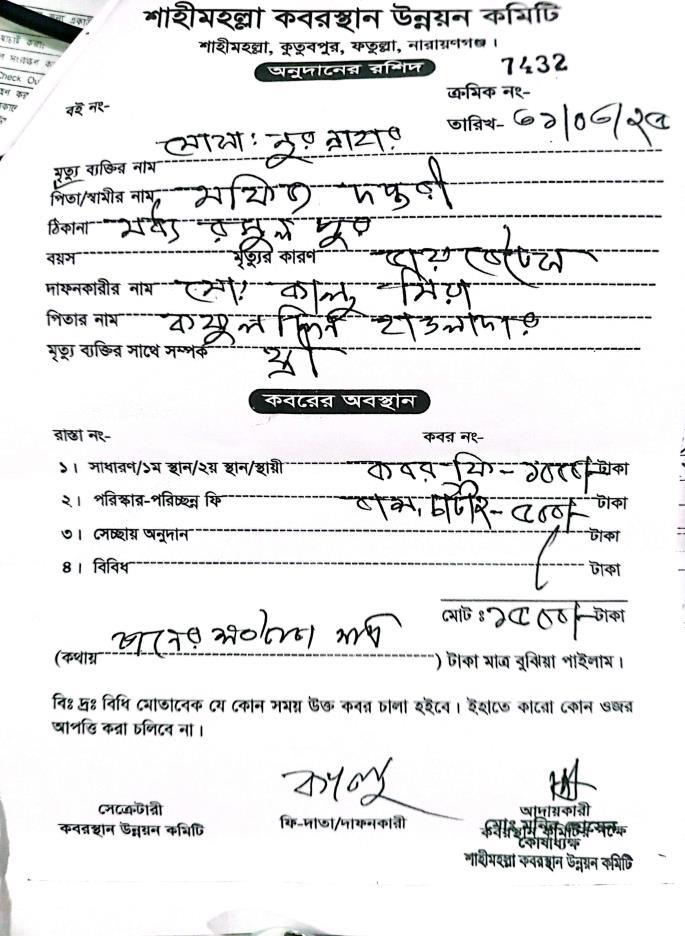 শাহীমহল্লা কবরস্থান উন্নয়ন কমিটি
শাহীমহল্লা, কুতুবপুর, ফতুল্লা, নারায়ণগঞ্জ।
অনুদানের রশিদ
7432
ক্রমিক নং-
বই নং-
তারিখ-
মোসা: নুর নাহার
মৃত্যু ব্যক্তির নাম
পিতা/স্বামীর নাম মফিজ দপ্তরী
ঠিকানা মধ্য রসুল পুর
বয়স মৃত্যুর কারণ
দাফনকারীর নাম মো: কালু মিয়া
পিতার নাম হাওলাদার
মৃত্যু ব্যক্তির সাথে সম্পর্ক স্ত্রী
কবরের অবস্থান
রাস্তা নং- কবর নং-
১। সাধারণ/১ম স্থান/২য় স্থান/স্থায়ী কবর ফি - ১০০০/- টাকা
২। পরিস্কার-পরিচ্ছন্ন ফি বাস, চাটাই - ৫০০/- টাকা
৩। সেচ্ছায় অনুদান টাকা
৪। বিবিধ টাকা
মোট : ১৫০০/- টাকা
(কথায় পনের শত টাকা মাত্র ) টাকা মাত্র বুঝিয়া পাইলাম।
বিঃ দ্রঃ বিধি মোতাবেক যে কোন সময় উক্ত কবর চালা হইবে। ইহাতে কারো কোন ওজর
আপত্তি করা চলিবে না।
কালু
সেক্রেটারী
কবরস্থান উন্নয়ন কমিটি
ফি-দাতা/দাফনকারী
আদায়কারী
কবরস্থান কমিটির পক্ষে
কোষাধ্যক্ষ
শাহীমহল্লা কবরস্থান উন্নয়ন কমিটি